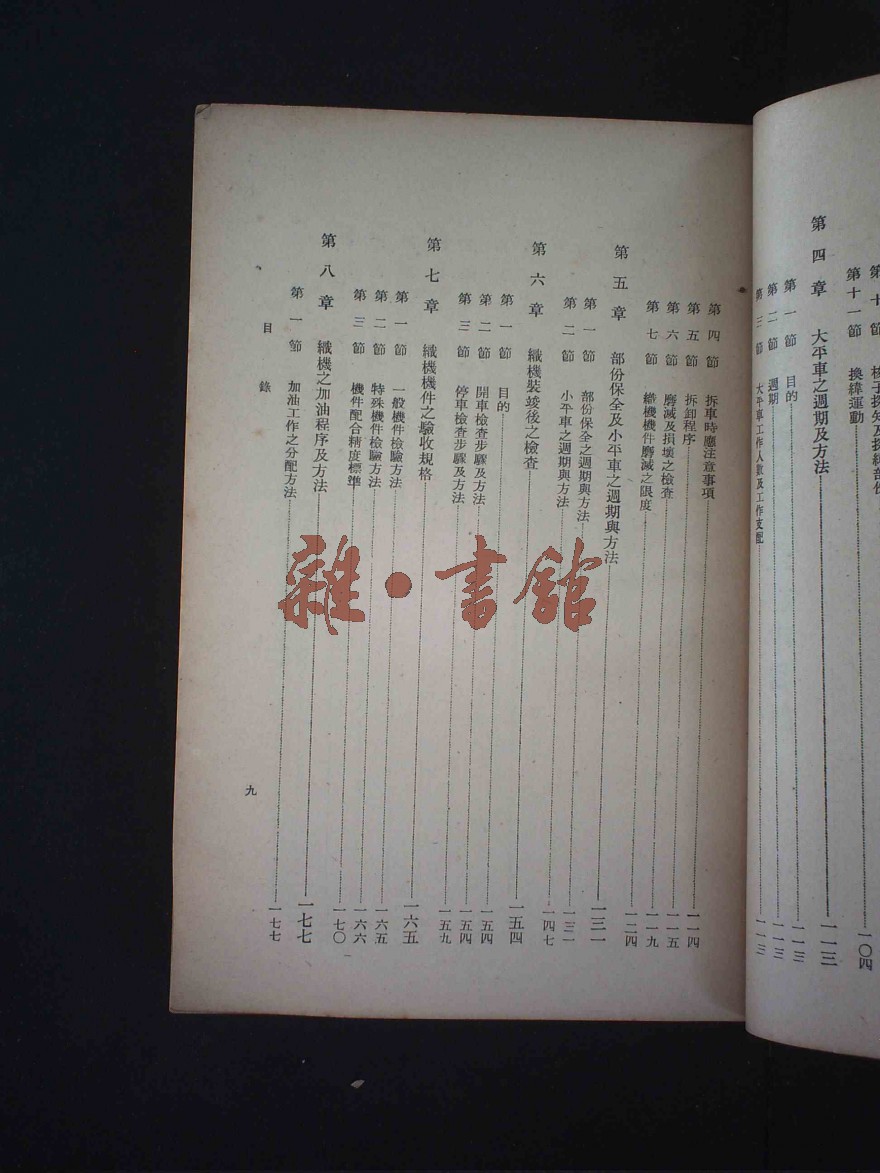 第十一節　換緯運動……一〇四
第四章　大平車之週期及方法……一一三
第一節　目的……一一三
第二節　週期……一一三
第三節　大平車工作人數及工作支配……一一三
第四節　拆車時應注意事項……一一四
第五節　拆卸程序……一一五
第六節　磨減及損壞之檢查……一一九
第七節　織機機件磨減之限度……一二四
第五章　部份保全及小平車之週期與方法……一三一
第一節　部份保全之週期與方法……一三一
第二節　小平車之週期與方法……一四七
第六章　織機裝竣後之檢查……一五四
第一節　目的……一五四
第二節　開車檢查步驟及方法……一五四
第三節　停車檢查步驟及方法……一五九
第七章　織機機件之驗收規格……一六五
第一節　一般機件檢驗方法……一六五
第二節　特殊機件檢驗方法……一六六
第三節　機件配合精度標準……一七〇
第八章　織機之加油程序及方法……一七七
第一節　加油工作之分配方法……一七七
目錄
九
雜·書館